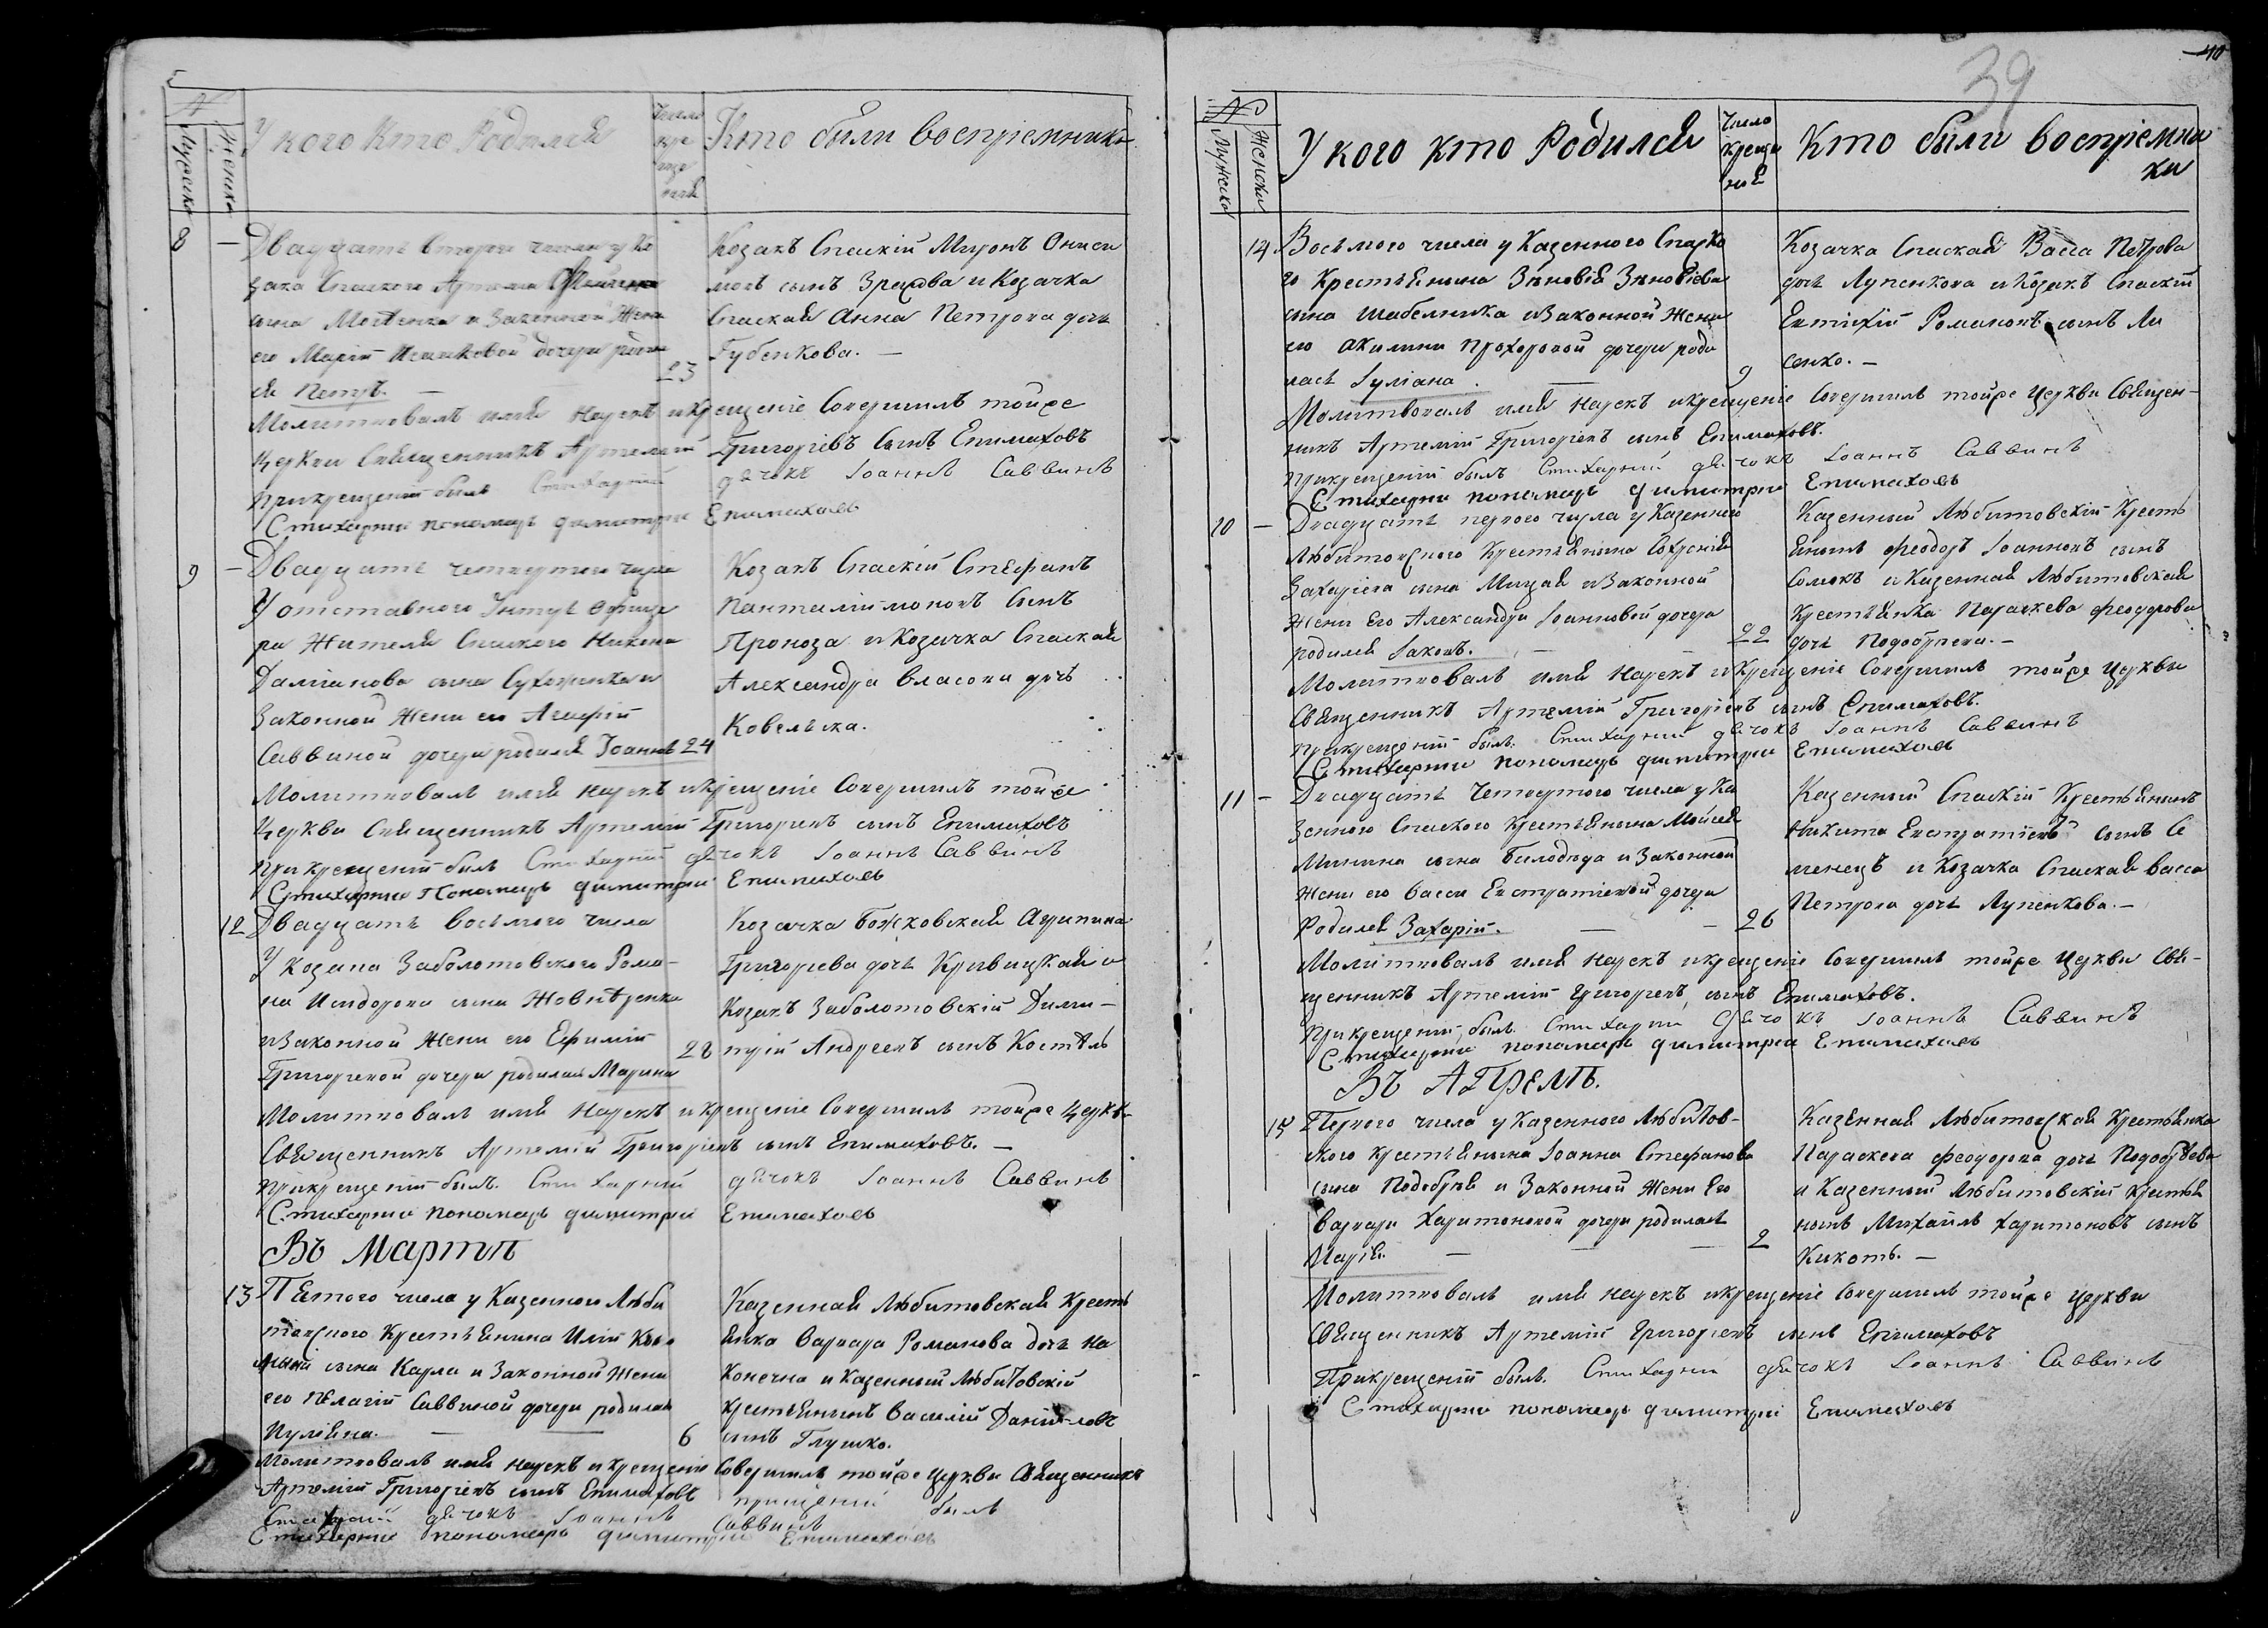 №
Мужеска
Женска
У кого Кто Родился
Число
кре
ще
ния
Кто были воспріемники
8 — Двадцать втораго числа у Ко
зака Спаского Артема
сына Мовенка и Законной Жени
его Маріи Исааковой дочери родил
ся Петръ. — 23
Козакъ Спаскій Миронъ Ониси
мовъ сынъ Зрадова и Козачка
Спаская Анна Петрова дочь
Губенкова. —
Молитвовалъ имя нарекъ и крещеніе Совершилъ тойже
церкви Священникъ Артемій Григоріевъ Сынъ Епимаховъ
При крещеніи былъ Стихарній дячокъ Іоаннъ Саввинъ
Стихарни пономарь Димитрии Епимаховъ
9 — Двадцать четвертого числа
У отставного Унтеръ Офице
ра Жителя Спаского Никона
Даміанова сына Сухоненка и
Законной Жени его Агафіи
Саввиной дочери родился Іоаннъ 24
Козакъ Спаскій Стефанъ
Пантелиймоновъ Сынъ
Проноза и Козачка Спаская
Александра Власова дочь
Ковельска.
Молитвовалъ имя нарекъ и крещеніе Совершилъ тойже
Церкви Священникъ Артемій Григоріевъ сынъ Епимаховъ
При крещеніи былъ Стихарній дячокъ Іоаннъ Саввинъ
Стихарни Пономарь Димитрии Епимаховъ
12 Двадцать восьмого числа
У Козака Заболотовского Рома-
на Исидорова сына Жовнеренка
и Законной Жени его Ефиміи
Григорієвой дочери родилась Марина 28
Козачка Божковская Агрипина
Григорїева дочь Кривицкая и
Козакъ Заболотовскій Дими-
трій Андреевъ сынъ Костель
Молитвовалъ имя нарекъ и крещеніе Совершилъ тойже Церкви
Священникъ Артемій Григоріевъ сынъ Епимаховъ. —
При крещеніи былъ. Стихарній дячокъ Іоаннъ Саввинъ
Стихарни пономарь Димитрий Епимаховъ
Въ Мартѣ
13 Пятого числа у Казенного Люби
товского Крестьянина Иліи
сына Карла и Законной Жени
его Пелагіи Саввиной дочери родилась
Иуліяна. — 6
Казенная Любитовская Кресть
янка Варвара Романова дочь На
Конечна и Казенный Любитовскій
Крестьянинъ Василій Даніиловъ
сынъ Глушко.
Молитвовалъ имя нарекъ и крещеніе Совершилъ тойже Церкви Священникъ
Артемій Григоріевъ сынъ Епимаховъ при крещеніи былъ
Стихарній дячокъ Іоаннъ Саввинъ
Стихарни пономарь Димитрии Епимаховъ
39
40
№
Мужеска
Женска
У кого кто Родился
Число
креще
ния
Кто были воспріемни
ки
14 Восьмого числа у Казенного Спаско
го Крестьянина Зѣновія Зѣновіева
сына Шабелника и Законной Жени
его Акилини Прохоровой дочери роди
лась Іуліана. — 9
Козачка Спаская Васса Петрова
дочь Лупенкова и Козакъ Спаскій
Евтихій Романовъ сынъ Ли
сенко. —
Молитвовалъ имя нарекъ и крещеніе Совершилъ тойже Церкви Священ-
никъ Артемій Григоріевъ сынъ Епимаховъ.
При крещеніи былъ Стихарній дячокъ Іоаннъ Саввинъ
Стихарни пономарь Димитрии Епимаховъ
10 — Двадцать первого числа у Казенного
Любитовского Крестьянина
Захаріева сына Мицая и Законной
Жени Его Александри Іоанновой дочери
родился Іаковъ. — 22
Казенный Любитовскій Кресть
янинъ Феодоръ Іоанновъ сынъ
Сомокъ и Казенная Любитовская
Крестьянка Параскева Феодорова
дочь Подобрѣева. —
Молитвовалъ имя нарекъ и крещеніе Совершилъ тойже Церкви
Священникъ Артемій Григоріевъ сынъ Епимаховъ.
При крещеніи былъ. Стихарній дячокъ Іоаннъ Саввинъ
Стихарни пономарь Димитрии Епимаховъ
11 — Двадцать Четвертого числа у Ка
зенного Спаского Крестьянина Мойсея
Минина сына Билодѣда и Законной
Жени его Васси Евстратіевой дочери
Родился Захарій. — — 26
Казенный Спаскій Крестьянинъ
Никита Евстратіевъ сынъ Се
менецъ и Козачка Спаская Васса
Петрова дочь Лупенкова. —
Молитвовалъ имя нарекъ и крещеніе Совершилъ тойже Церкви Свя-
щенникъ Артемій Григоріевъ, сынъ Епимаховъ.
При крещеніи былъ. Стихарній дячокъ Іоаннъ Саввинъ
Стихарній пономарь Димитрии Епимаховъ
Въ Апрелѣ.
15 Первого числа у Казенного Любитов-
ского Крестьянина Іоанна Стефанова
сына Подобрѣя и Законной Жени Его
Варвари Харитоновой дочери родилась
Марія. — — — 2
Казенная Любитовская Крестьянка
Параскева Феодорова дочь Подобрѣева
и Казенный Любитовскій Крестья
нинъ Михаилъ Харитоновъ сынъ
Кикоть. —
Молитвовалъ имя нарекъ и крещеніе Совершилъ тойже Церкви
Священникъ Артемій Григоріевъ сынъ Епимаховъ
При крещеній былъ. Стихарній дячокъ Іоаннъ Саввинъ
Стихарни пономарь Димитрий Епимаховъ